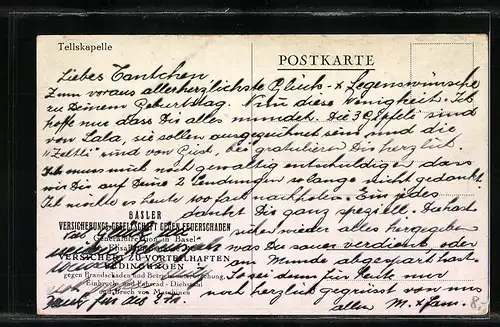 Tellskapelle
POSTKARTE
Liebes Tantchen
Zum voraus allerherzlichste Glück- x Segenswünsche
zu Deinem Geburtstag. diese Wenigkeit. Ich
hoffe nur dass Dir alles mundet. Die 3 Epfeli sind
von Lala, sie sollen ausgezeichnet sein und die
"Zeltli" sind von Gust, gratulieren Dir herzlich.
Ich muss mich noch gewaltig entschuldigen dass
wir Dir auf Deine 2 Sendungen solange nicht gedankt.
Ich wollte es heute nachholen. Ein jedes
dankt Dir ganz speziell. Du hast
sicher wieder alles hergegeben
was Du sauer verdient oder
am Munde abgespart hast.
So sei denn für heute nur
noch herzlich gegrüsst von uns
allen M. x Fam.
BASLER
VERSICHERUNGS-GESELLSCHAFT GEGEN FEUERSCHADEN
Generaldirektion in Basel
VERSICHERT ZU VORTEILHAFTEN
BEDINGUNGEN
gegen Brandschaden und
Einbruch- und Fahrrad-Diebstahl
und Bruch von Maschinen
8,-